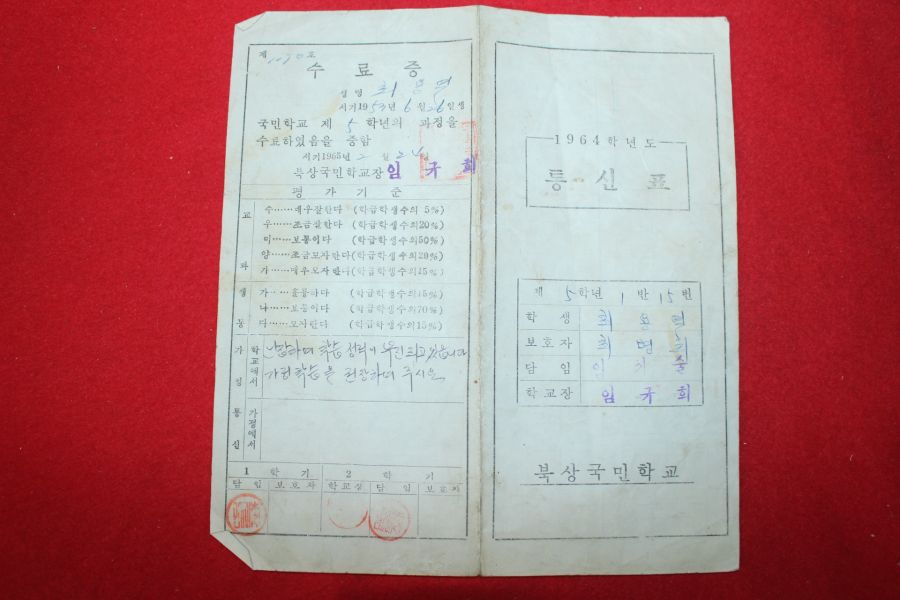 제 호
수료증
성명 최
서기1953년 6월 26일생
국민학교 제 5 학년의 과정을
수료하였음을 증함
서기1965년 2월 24일
북상국민학교장 임규희
평가기준
교과
수……매우잘한다 (학급학생수의 5%)
우……조금잘한다 (학급학생수의20%)
미……보통이다 (학급학생수의50%)
양……조금모자란다(학급학생수의20%)
가……매우모자란다(학급학생수의 5%)
생동
가……훌륭하다 (학급학생수의15%)
나……보통이다 (학급학생수의70%)
다……모자란다 (학급학생수의15%)
가정통신
학교에서
학습 성적이 있습니다
가정학습을 권장하여 주시오
가정에서
1 학기 2 학기
담임 보호자 학교장 담임 보호자
1964학년도
통신표
제 5학년 1 반 15번
학생 최
보호자 최
담임 임
학교장 임규희
북상국민학교